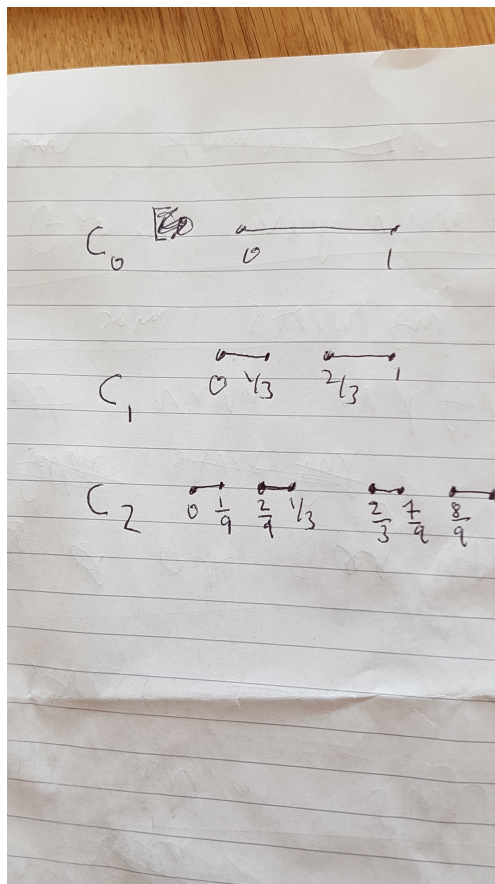 C₀
0 1
C₁
0 1/3 2/3 1
C₂
0 1/9 2/9 1/3 2/3 7/9 8/9